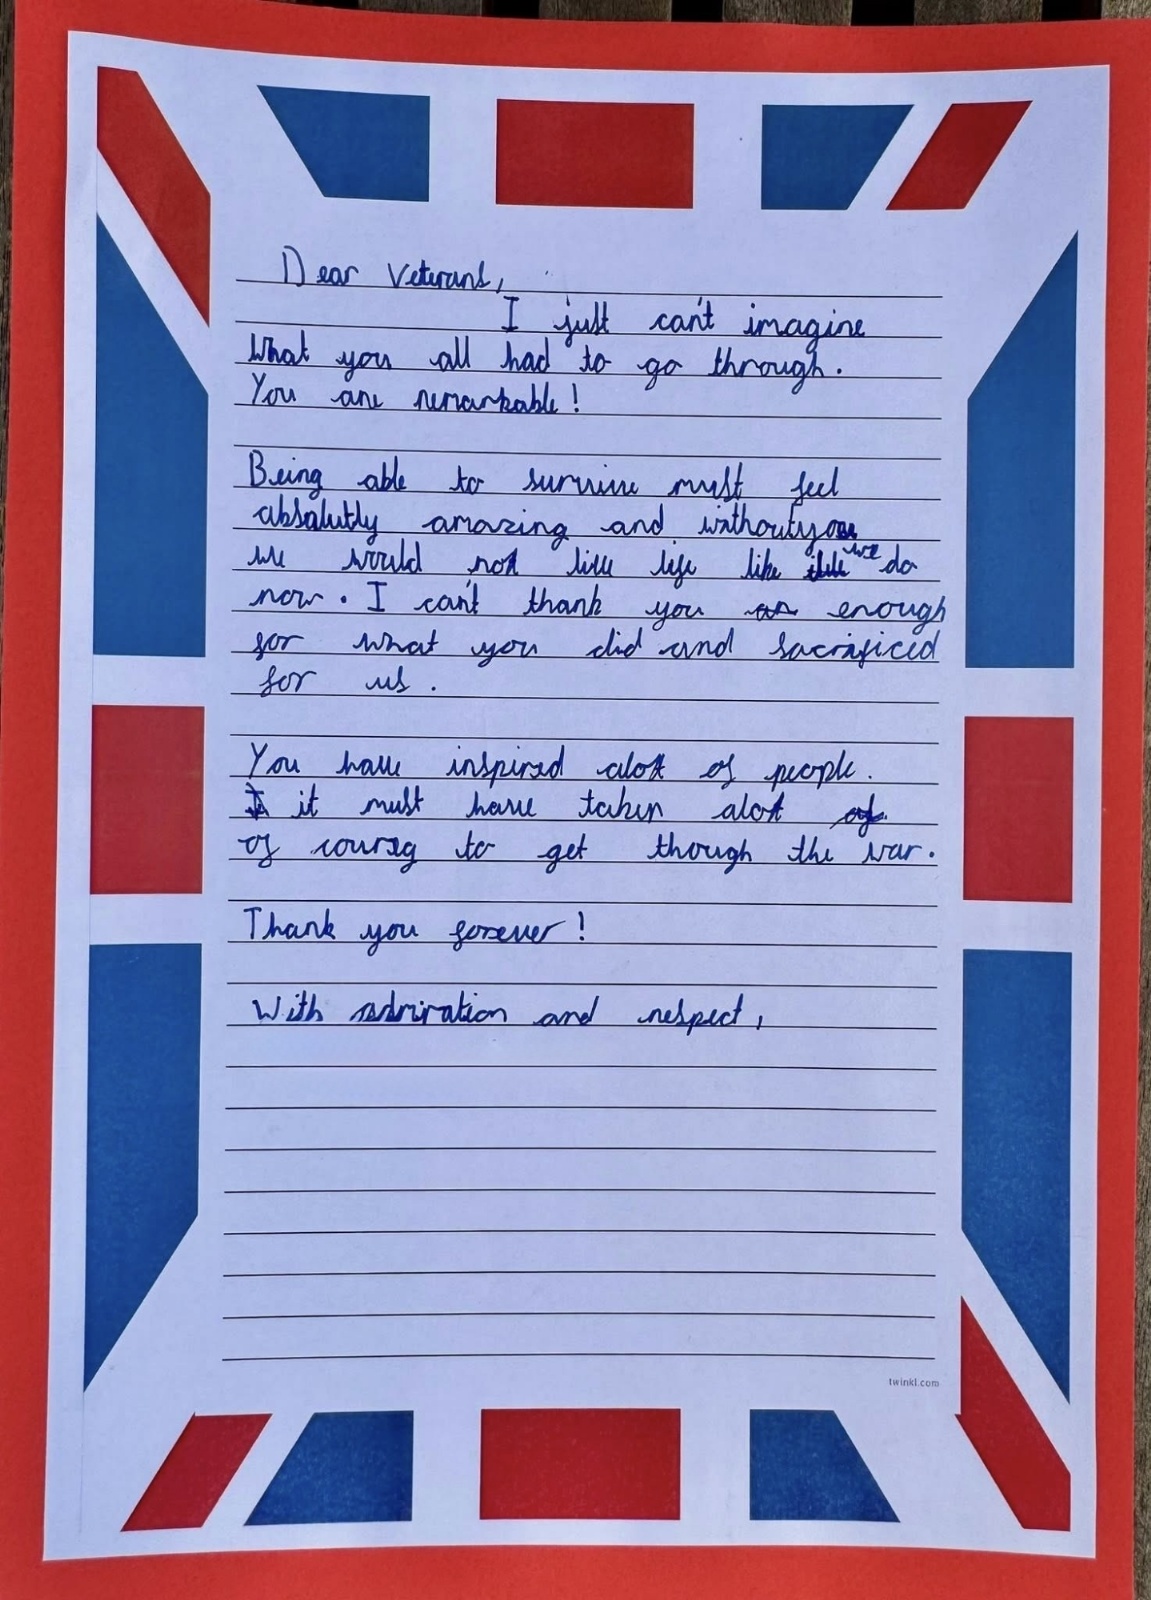 Dear Veterans,
I just can't imagine
what you all had to go through.
You are remarkable!
Being able to survive must feel
absalutly amazing and without you
we would not live life like we do
now. I can't thank you enough
for what you did and sacrificed
for us.
You have inspired alot of people.
it must have taken alot
of courag to get though the war.
Thank you forever!
With admiration and respect,
twinkl.com